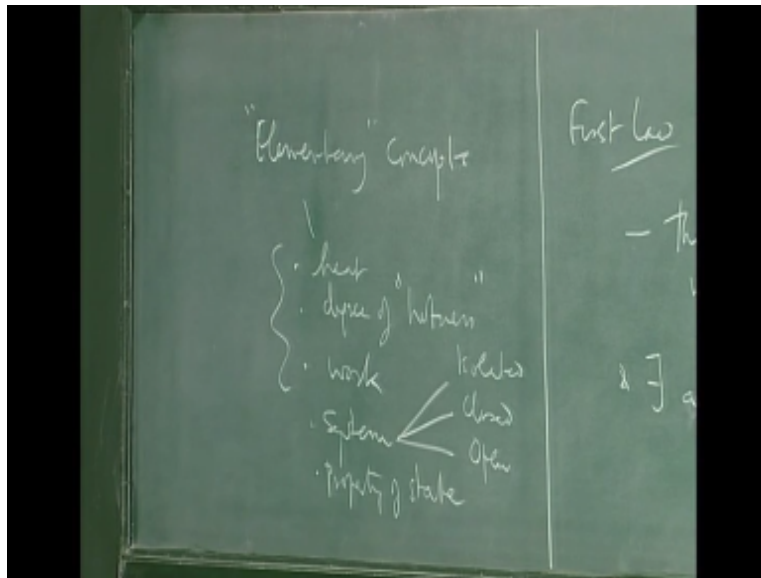 "Elementary" concepts
· heat
· degree of "hotness"
· work
· System
Isolated
Closed
Open
· Property of state
First Law
- Th
& ∃ a